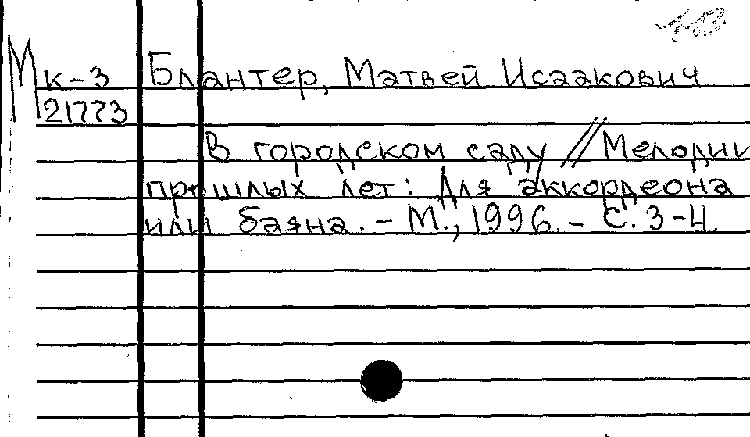 Мк-3 Блантер, Матвей Исаакович
21773
В городском саду // Мелодии
прошлых лет: Для аккордеона
или баяна. - М., 1996. - С. 3-4.